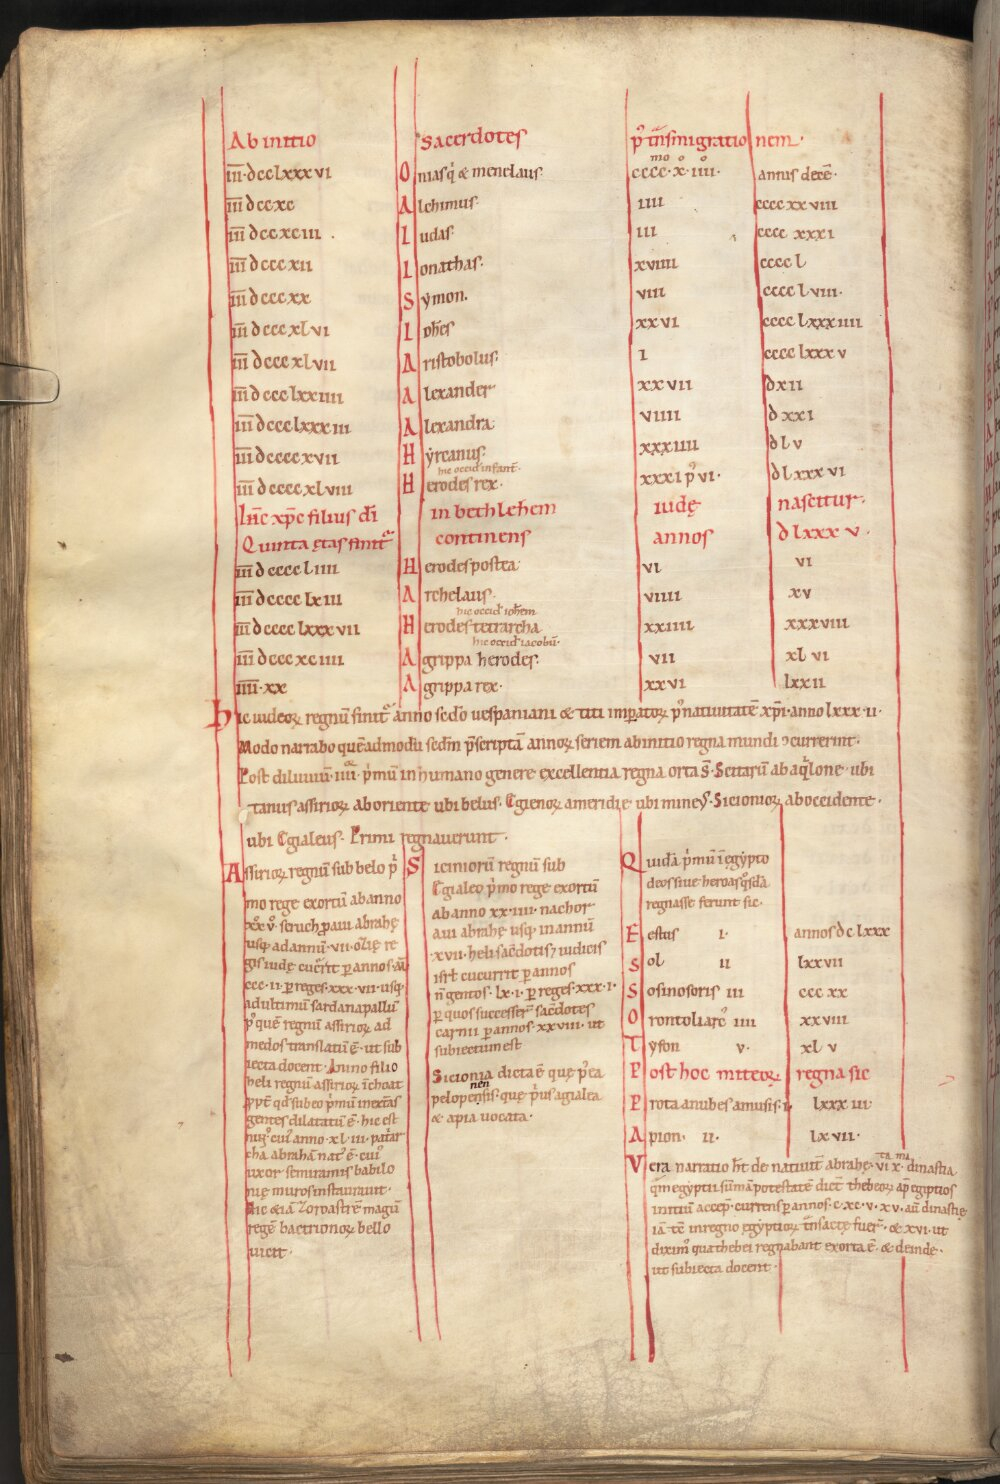 Ab initio Sacerdotes p' tnsmigratio nem.
III·dcclxxxvi Oniasq' & menelaus cccc·x·iiii· annis dece·
III dccxc Alchimus· iiii ccccxxviii
III dccxciii· Iudas· iii cccc xxxi
III dcccxii Ionathas· xviiii cccc l
III dcccxx Symon. viii cccc lviii·
III dcccxlvi Iohes xxvi cccc lxxxiiii
III dcccxlvii Aristobolus· i cccc lxxxv
III dccclxxiiii Alexander xxvii dxii
III dccclxxxiii Alexandra viiii dxxi
III dccccxvii Hyrcanus· xxxiiii dlv
hic occid infant·
III dccccxlviii Herodes rex· xxxi p' vi· dlxxxvi
Ihc xpc filius di in bethlehem iudę nascitur·
Quinta ętas finit continens annos dlxxxv·
III dccccliiii Herodes postea vi vi
III dcccclxiii Archelaus· viiii xv
hic occid iohem
III dcccclxxxvii Herodes tetrarcha xxiiii xxxviii
hic occid iacobu·
III dcccxciiii Agrippa herodes· vii xlvi
IIII·xx Agrippa rex· xxvi lxxii
Hic iudeoꝝ regnu finit anno scdo vespaniani & titi impatoꝝ p' natiuitate xpi· anno lxxxii·
Modo narrabo queadmodu scdm pscripta annoꝝ seriem ab initio regna mundi ꝯcurrerint·
Post diluuiu· iiii· p'mu in humano genere excellentia regna orta s· Scitaru ab aq'lone· ubi
tanus assirioꝝ ab oriente ubi belus· Egienoꝝ a meridie ubi mineỹ· Sicionioꝝ ab occidente·
ubi Egialeus· Primi regnauerunt·
Assirioꝝ regnu sub belo p'
mo rege exortu ab anno
xx v· seruch ꝓaui abrahę
usq; ad annu· vii· ozię re
gis iudę cucrrit ꝑ annos· au
ccc·ii· ꝑ reges·xxx·vii·usq;
ad ultimu sardanapallu
p' que regnu assirioꝝ ad
medos translatu e· ut sub
iecta docent· Nino filio
beli regnu assirioꝝ ichoat
ppt qd sub eo p'mu in extas
gentes dilatatu e· hic est
niꝰ cuiꝰ anno·xl·iii· patar
cha abraha natꝰ e· cuiꝰ
uxor semiramis babilo
nię muros instaurauit·
hic & ia Zoroastre magu
rege bactrionoꝝ bello
uicit·
Siciniorū regnu sub
Egialeo p'mo rege exortu
ab anno xx·iiii· nachor
aui abrahę usq; in annu
·xvii· heli sacdotis & iudicis
isrl cucurrit ꝑ annos
n gentos·lx·i· ꝑ reges·xxx·i·
ꝑ quos successer sacdotes
carnii ꝑ annos·xxviii· ut
subiectum est
Sicionia dicta e quę p'ea
nen
pelopensis· quę p'us agialea
& apia uocata·
Quida p'mu i egypto
deos siue heroas q'sda
regnasse ferunt sic·
Festus i· annos dclxxx
Sol ii lxxvii
Sosinosoris iii cccxx
Orontoliarcꝰ iiii xxviii
Tyfon v· xlv
Post hoc miteoꝝ regna sic
Prota anubes amusis· i· lxxxiii
Apion· ii· lxvii·
Vera narratio ht de natiuit abrahę· vi x dinastia
qm egyptii sūma potestate dict thebeoꝝ ap egiptios
initiu accep· currens ꝑ annos·c·xc·v·xv·au dinastię
ia te in regno egyptioꝝ tnsactę fuer· & xvi· ut
diximꝰ qua thebei regnabant exorta e· & deinde·
ut subiecta docent·